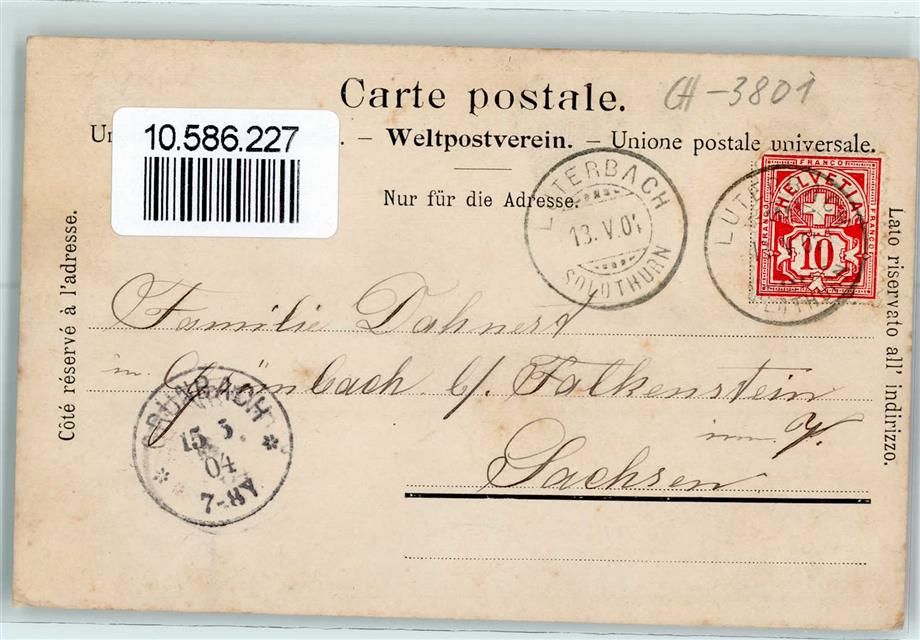 Carte postale.
CH-3801
10.586.227
Un . – Weltpostverein. – Unione postale universale.
Nur für die Adresse.
LUTERBACH
13.V.04
SOLOTHURN
LUTE
HELVETIA
FRANCO
FRANCO
FRANCO
FRANCO
10
Côté réservé à l'adresse.
Lato riservato all' indirizzo.
Familie Dahnert
in Grünbach b/. Falkenstein
im V.
Sachsen
GRÜNBACH
15 5
04
7-8V